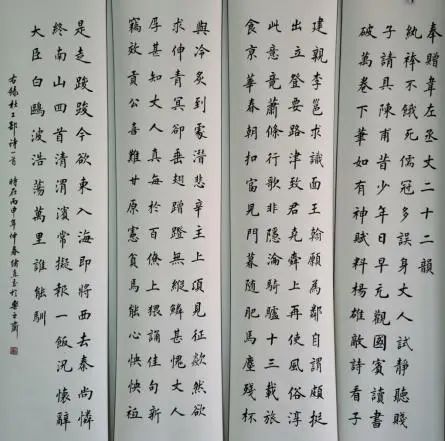 奉贈韋左丞丈二十二韻
紈袴不餓死儒冠多誤身丈人試靜聽賤
子請具陳甫昔少年日早充觀國賓讀書
破萬卷下筆如有神賦料楊雄敵詩看子
建親李邕求識面王翰願為鄰自謂頗挺
出立登要路津致君堯舜上再使風俗淳
此意竟蕭條行歌非隱淪騎驢十三載旅
食京華春朝扣富兒門暮隨肥馬塵殘杯
與冷炙到處潛悲辛主上頃見征欻然欲
求伸青冥卻垂翅蹭蹬無縱鱗甚愧丈人
厚甚知丈人真每於百僚上猥誦佳句新
竊效貢公喜難甘原憲貧焉能心怏怏祗
是走踆踆今欲東入海即將西去秦尚憐
終南山回首清渭濱常擬報一飯況懷辭
大臣白鷗波浩蕩萬里誰能馴
右錄杜工部詩一首 時在丙申年仲春